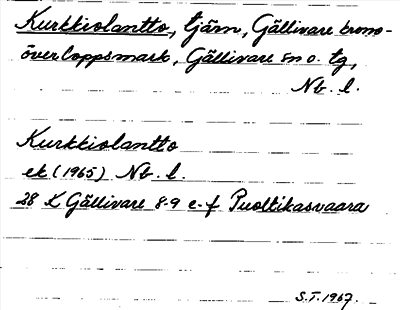 Kurkkiolantto, tjärn, Gällivare krono-
överloppsmark, Gällivare sn o. tg,
Nb. l.
Kurkkiolantto
ek (1965) Nb. l.
28 K Gällivare 8-9 e-f Puoltikasvaara
S.T. 1967.